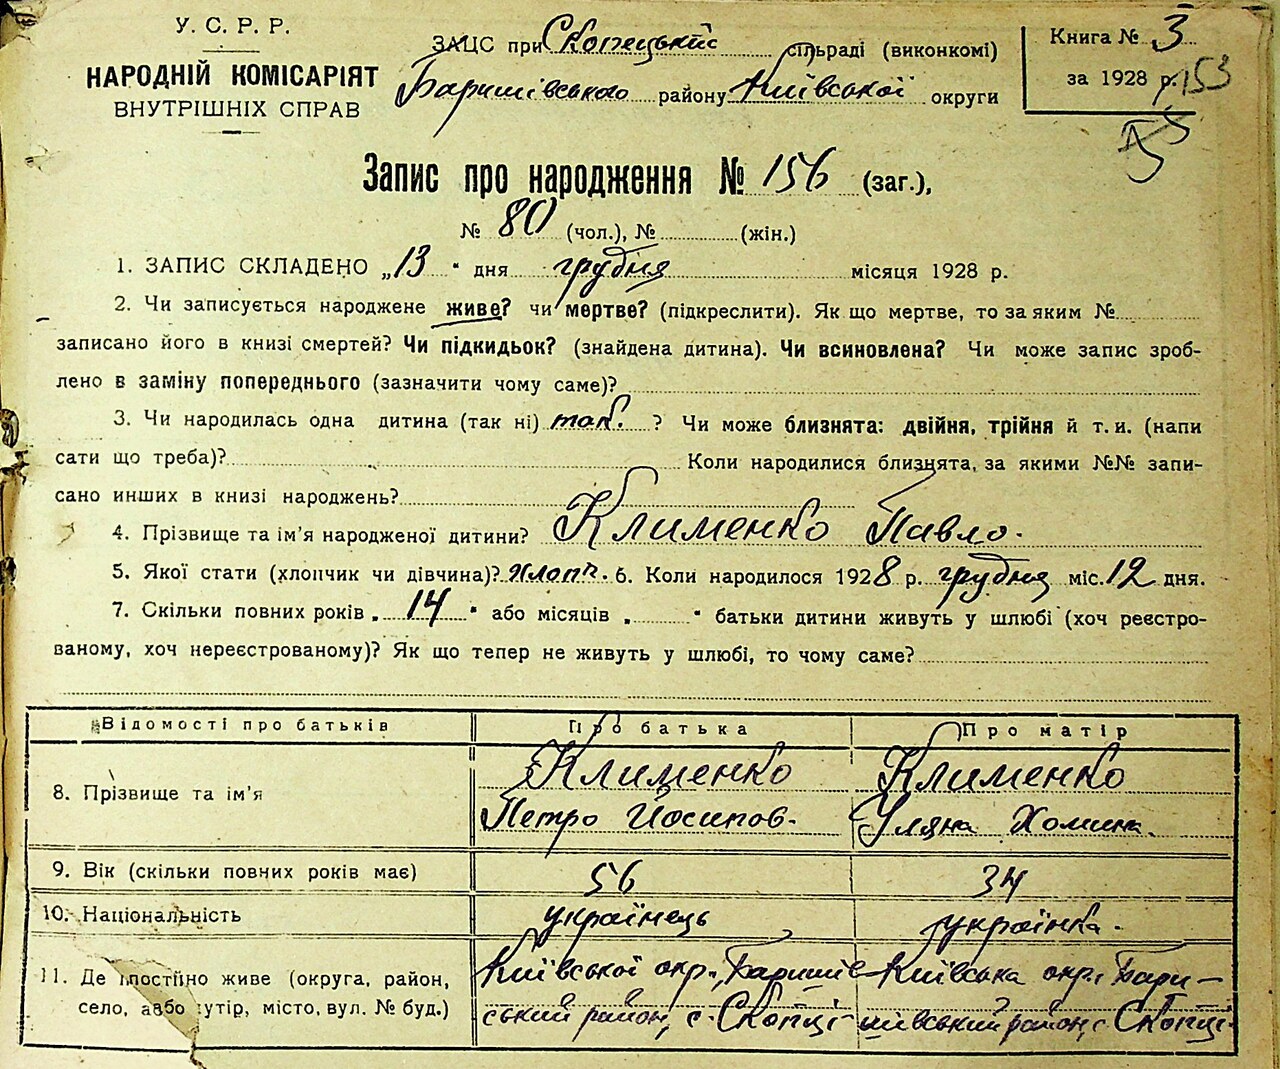 У. С. Р. Р.
НАРОДНІЙ КОМІСАРІЯТ
ВНУТРІШНІХ СПРАВ
ЗАЦС при Скопецькій сільраді (виконкомі)
Баришівського району Київської округи
Книга № 3
за 1928 р. 153
Запис про народження № 156 (заг.),
№ 80 (чол.), № (жін.)
1. ЗАПИС СКЛАДЕНО „13" дня грудня місяця 1928 р.
2. Чи записується народжене живе? чи мертве? (підкреслити). Як що мертве, то за яким №
записано його в книзі смертей? Чи підкидьок? (знайдена дитина). Чи всиновлена? Чи може запис зроб-
лено в заміну попереднього (зазначити чому саме)?
3. Чи народилась одна дитина (так ні) так. ? Чи може близнята: двійня, трійня й т. и. (напи
сати що треба)? Коли народилися близнята, за якими №№ запи-
сано инших в книзі народжень?
4. Прізвище та ім'я народженої дитини? Клименко Павло.
5. Якої стати (хлопчик чи дівчина)? Хлопч. 6. Коли народилося 1928 р. грудня міс. 12 дня.
7. Скільки повних років „14" або місяців „ " батьки дитини живуть у шлюбі (хоч реєстро-
ваному, хоч нереєстрованому)? Як що тепер не живуть у шлюбі, то чому саме?
Відомості про батьків Про батька Про матір
8. Прізвище та ім'я
Клименко
Петро Йосипов.
Клименко
Уляна Хомина.
9. Вік (скільки повних років має) 56 34
10. Національність українець українка.
11. Де постійно живе (округа, район,
село, або хутір, місто, вул. № буд.)
Київської окр., Баришів-
ський район, с. Скопці
Київська окр. Бари-
шівський район, с. Скопці